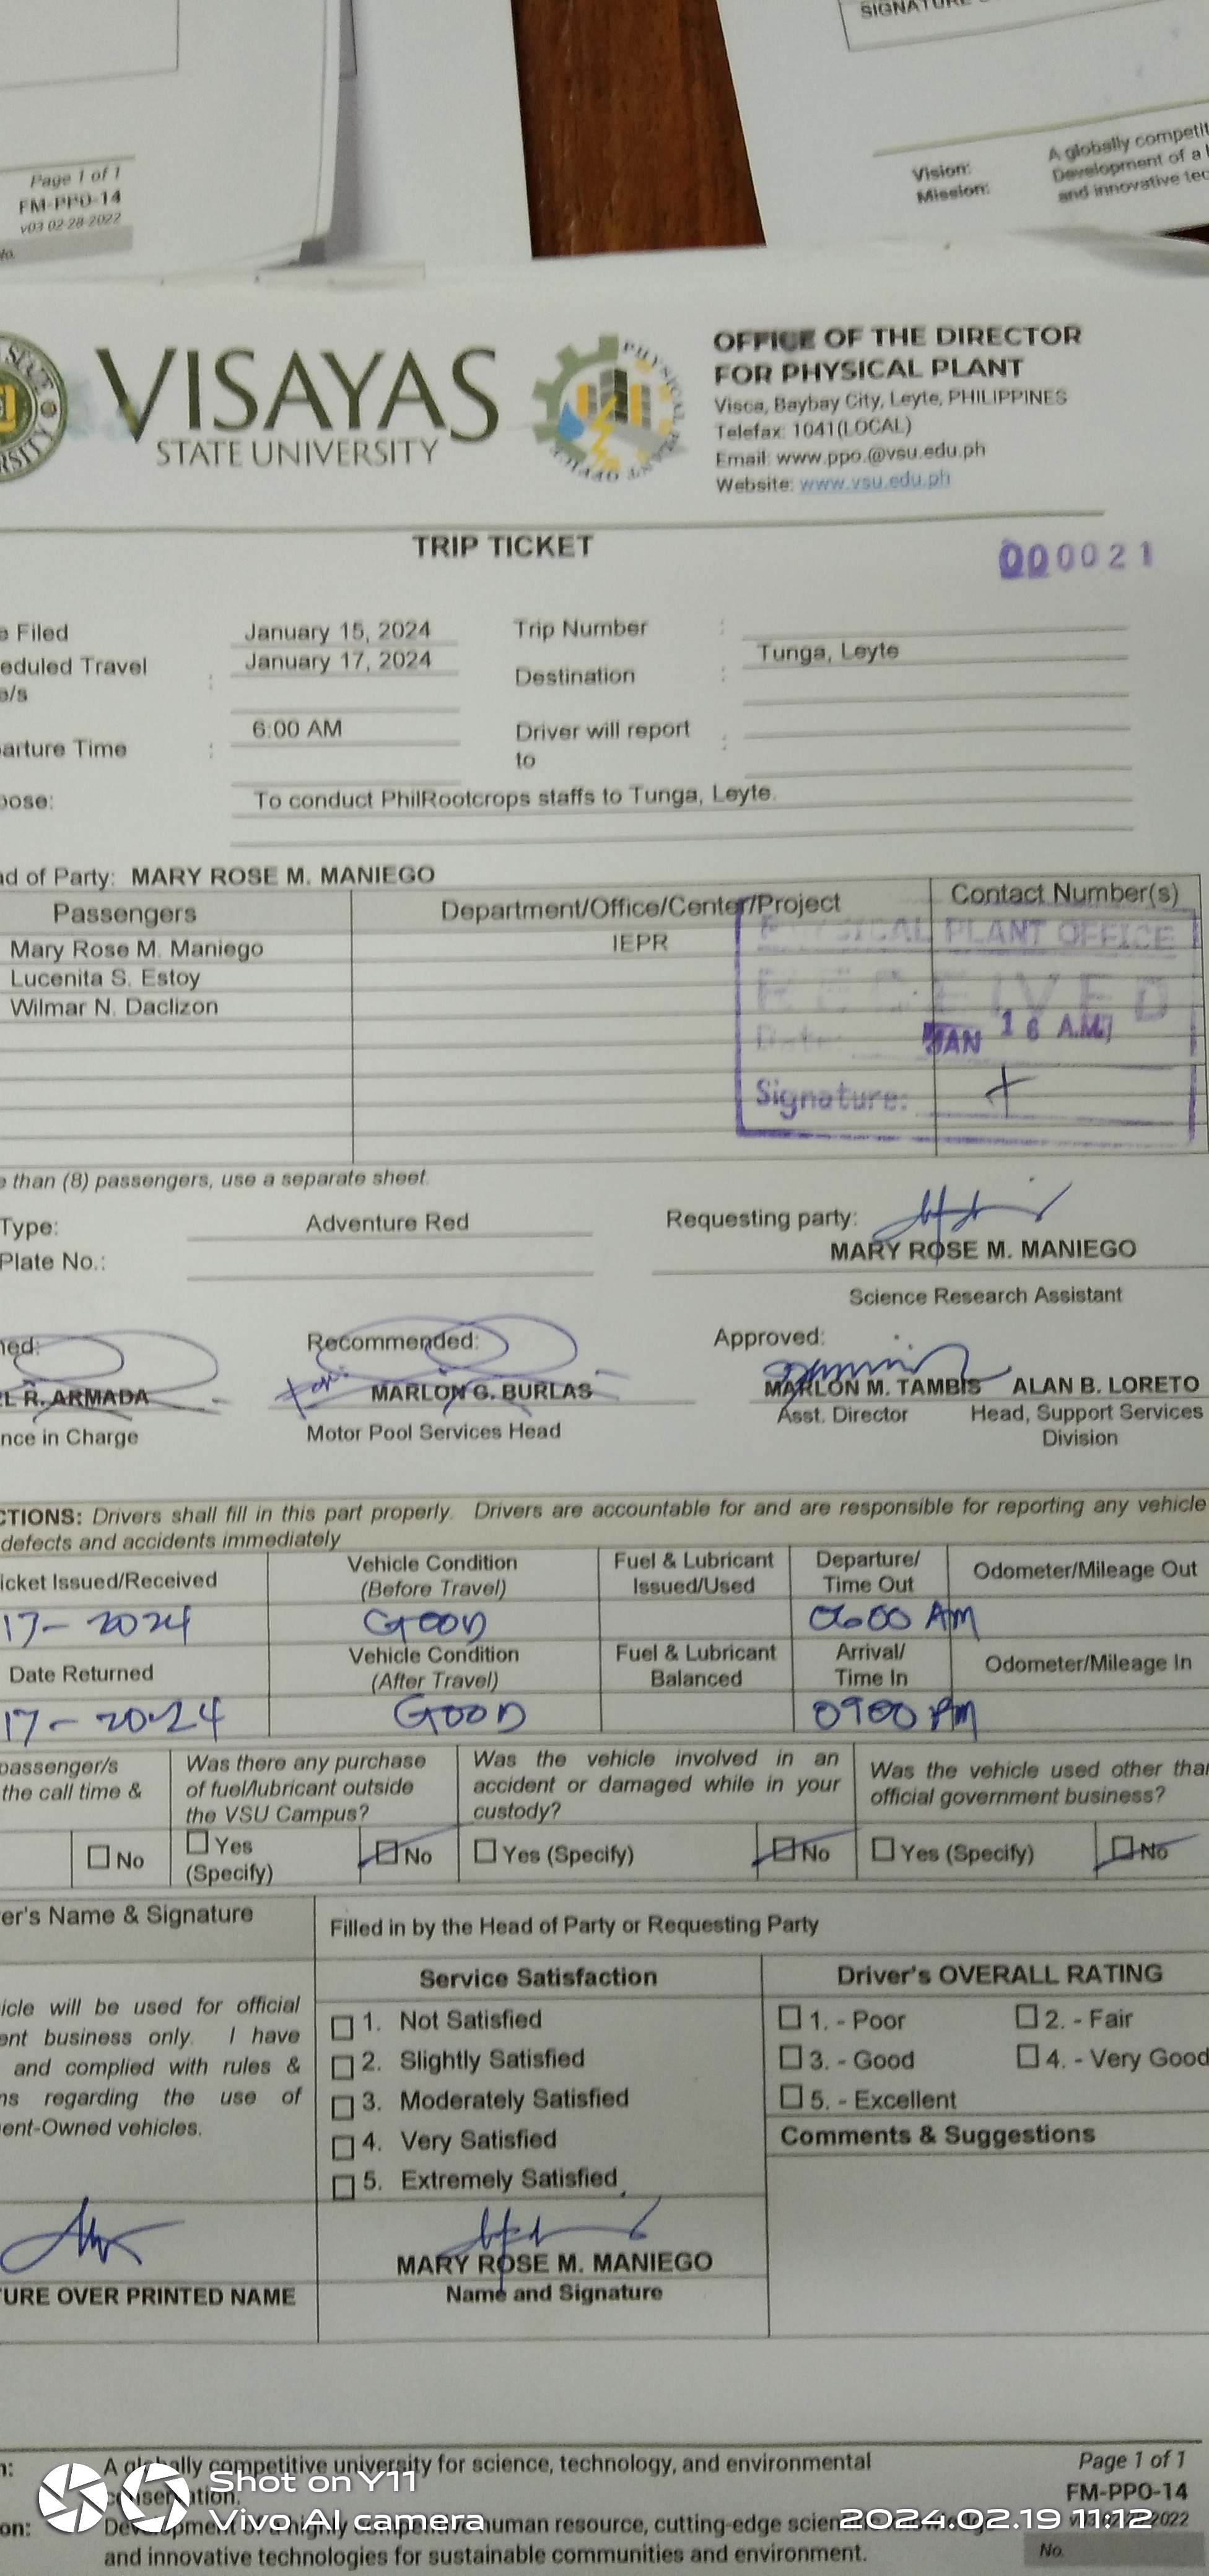 SIGNATURE
Page 1 of 1
FM-PPO-14
v03 02-28-2022
No.
Vision: A globally competit
Mission: Development of a
and innovative tec
VISAYAS
STATE UNIVERSITY
PHYSICAL PLANT OFFICE
OFFICE OF THE DIRECTOR
FOR PHYSICAL PLANT
Visca, Baybay City, Leyte, PHILIPPINES
Telefax: 1041(LOCAL)
Email: www.ppo.@vsu.edu.ph
Website: www.vsu.edu.ph
TRIP TICKET
000021
e Filed January 15, 2024 Trip Number :
eduled Travel : January 17, 2024 Destination : Tunga, Leyte
e/s
arture Time : 6:00 AM Driver will report :
to
pose: To conduct PhilRootcrops staffs to Tunga, Leyte.
ad of Party: MARY ROSE M. MANIEGO
Passengers Department/Office/Center/Project Contact Number(s)
Mary Rose M. Maniego IEPR
Lucenita S. Estoy
Wilmar N. Daclizon
PHYSICAL PLANT OFFICE
RECEIVED
Date: JAN 16 A.M.
Signature:
e than (8) passengers, use a separate sheet.
Type: Adventure Red Requesting party:
Plate No.: MARY ROSE M. MANIEGO
Science Research Assistant
ned: Recommended: Approved:
L R. ARMADA for: MARLON G. BURLAS MARLON M. TAMBIS ALAN B. LORETO
nce in Charge Motor Pool Services Head Asst. Director Head, Support Services
Division
CTIONS: Drivers shall fill in this part properly. Drivers are accountable for and are responsible for reporting any vehicle
defects and accidents immediately
icket Issued/Received Vehicle Condition Fuel & Lubricant Departure/ Odometer/Mileage Out
(Before Travel) Issued/Used Time Out
17-2024 GOOD 0600 AM
Date Returned Vehicle Condition Fuel & Lubricant Arrival/ Odometer/Mileage In
(After Travel) Balanced Time In
17-2024 GOOD 0900 PM
passenger/s Was there any purchase Was the vehicle involved in an Was the vehicle used other than
the call time & of fuel/lubricant outside accident or damaged while in your official government business?
the VSU Campus? custody?
No Yes No Yes (Specify) No Yes (Specify) No
(Specify)
er's Name & Signature Filled in by the Head of Party or Requesting Party
Service Satisfaction Driver's OVERALL RATING
icle will be used for official 1. Not Satisfied 1. - Poor 2. - Fair
ent business only. I have 2. Slightly Satisfied 3. - Good 4. - Very Good
and complied with rules & 3. Moderately Satisfied 5. - Excellent
ns regarding the use of 4. Very Satisfied Comments & Suggestions
ent-Owned vehicles. 5. Extremely Satisfied
MARY ROSE M. MANIEGO
URE OVER PRINTED NAME Name and Signature
n: A globally competitive university for science, technology, and environmental Page 1 of 1
conservation. FM-PPO-14
on: Development of a highly competitive human resource, cutting-edge scientific
and innovative technologies for sustainable communities and environment. No.
Shot on Y11
Vivo AI camera
2024.02.19 11:12